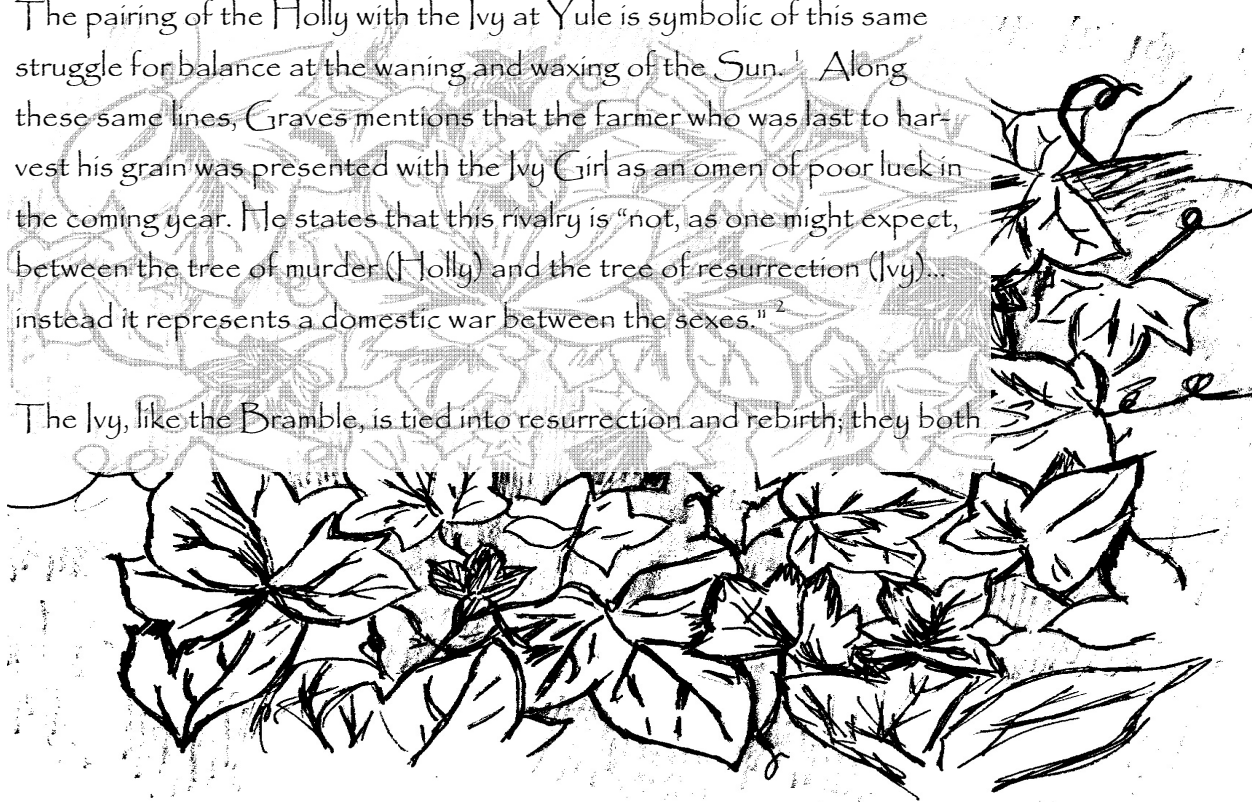 The pairing of the Holly with the Ivy at Yule is symbolic of this same
struggle for balance at the waning and waxing of the Sun. 1 Along
these same lines, Graves mentions that the farmer who was last to har-
vest his grain was presented with the Ivy Girl as an omen of poor luck in
the coming year. He states that this rivalry is “not, as one might expect,
between the tree of murder (Holly) and the tree of resurrection (Ivy)...
instead it represents a domestic war between the sexes.” 2
The Ivy, like the Bramble, is tied into resurrection and rebirth; they both